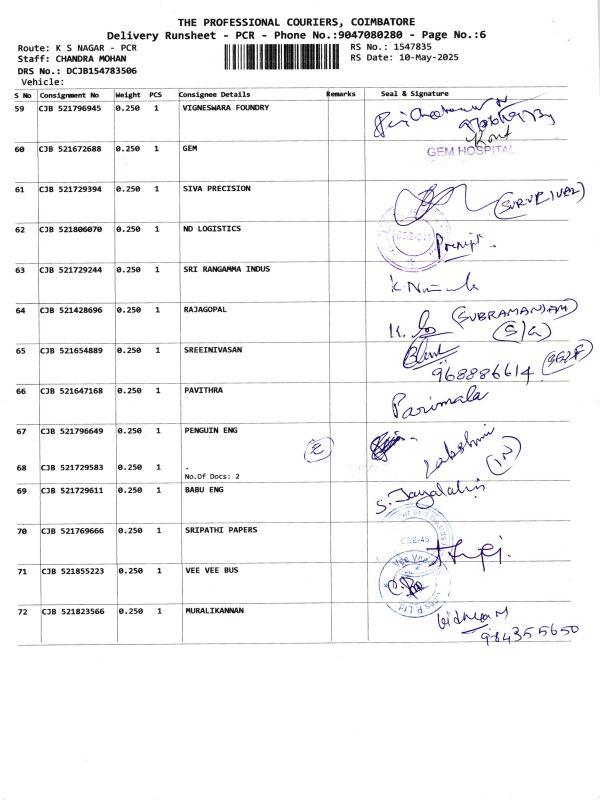 THE PROFESSIONAL COURIERS, COIMBATORE
Delivery Runsheet - PCR - Phone No.:9047080280 - Page No.:6
Route: K S NAGAR - PCR
RS No.: 1547835
Staff: CHANDRA MOHAN
RS Date: 10-May-2025
DRS No.: DCJB154783506
Vehicle:
S No Consignment No Weight PCS Consignee Details Remarks Seal & Signature
59 CJB 521796945 0.250 1 VIGNESWARA FOUNDRY
60 CJB 521672688 0.250 1 GEM GEM HOSPITAL
61 CJB 521729394 0.250 1 SIVA PRECISION
62 CJB 521806070 0.250 1 ND LOGISTICS
63 CJB 521729244 0.250 1 SRI RANGAMMA INDUS
64 CJB 521428696 0.250 1 RAJAGOPAL (SUBRAMANIAM)
(S/G)
65 CJB 521654889 0.250 1 SREEINIVASAN
9688886614
66 CJB 521647168 0.250 1 PAVITHRA Parimala
67 CJB 521796649 0.250 1 PENGUIN ENG Lakshmi
68 CJB 521729583 0.250 1 .
No.Of Docs: 2
69 CJB 521729611 0.250 1 BABU ENG S. Jayalakshmi
70 CJB 521769666 0.250 1 SRIPATHI PAPERS CSE-45
71 CJB 521855223 0.250 1 VEE VEE BUS
72 CJB 521823566 0.250 1 MURALIKANNAN
984355650